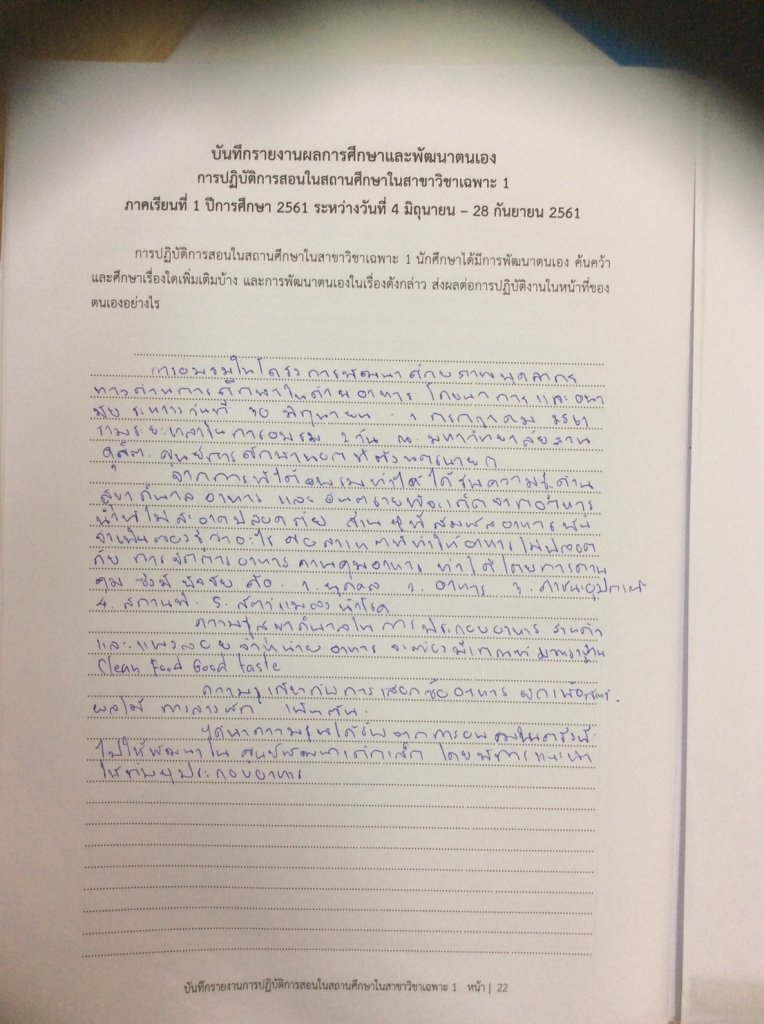 บันทึกรายงานผลการศึกษาและพัฒนาตนเอง
การปฏิบัติการสอนในสถานศึกษาในสาขาวิชาเฉพาะ 1
ภาคเรียนที่ 1 ปีการศึกษา 2561 ระหว่างวันที่ 4 มิถุนายน – 28 กันยายน 2561
การปฏิบัติการสอนในสถานศึกษาในสาขาวิชาเฉพาะ 1 นักศึกษาได้มีการพัฒนาตนเอง ค้นคว้า
และศึกษาเรื่องใดเพิ่มเติมบ้าง และการพัฒนาตนเองในเรื่องดังกล่าว ส่งผลต่อการปฏิบัติงานในหน้าที่ของ
ตนเองอย่างไร
การอบรมในโครงการพัฒนาศักยภาพบุคลากร
ทางด้านการศึกษาในด้านอาหาร โภชนาการ และอนา
มัย ระหว่างวันที่ 30 มิถุนายน - 1 กรกฎาคม 2561
รวมระยะเวลาในการอบรม 2 วัน ณ มหาวิทยาลัยสวน
ดุสิต ศูนย์การศึกษานอกที่ตั้งนครนายก
จากการที่ได้อบรมทำให้ได้รับความรู้ด้าน
สุขาภิบาลอาหาร และอันตรายที่จะเกิดจากอาหาร
น้ำที่ไม่สะอาดปลอดภัย ส่วนผู้ที่สัมผัสอาหารนั้น
จำเป็นต้องรู้ว่าอะไร คือสาเหตุที่ทำให้อาหารไม่ปลอด
ภัย การจัดการอาหาร ควบคุมอาหาร ทำได้โดยการควบ
คุม ซึ่งมีปัจจัย คือ 1. บุคคล 2. อาหาร 3. ภาชนะอุปกรณ์
4. สถานที่ 5. สัตว์แมลงนำโรค
ความรู้สุขาภิบาลในการประกอบอาหาร ร้านค้า
และแผงลอยจำหน่ายอาหาร จะต้องมีเกณฑ์มาตรฐาน
Clean Food Good taste
ความรู้เกี่ยวกับการเลือกซื้ออาหาร ผัก เนื้อสัตว์
ผลไม้ การล้างผัก เป็นต้น
ได้นำความรู้ที่ได้รับจากการอบรมในครั้งนี้
ไปใช้พัฒนาใน ศูนย์พัฒนาเด็กเล็ก โดยมีการแนะนำ
ให้กับผู้ประกอบอาหาร
บันทึกรายงานการปฏิบัติการสอนในสถานศึกษาในสาขาวิชาเฉพาะ 1 หน้า | 22